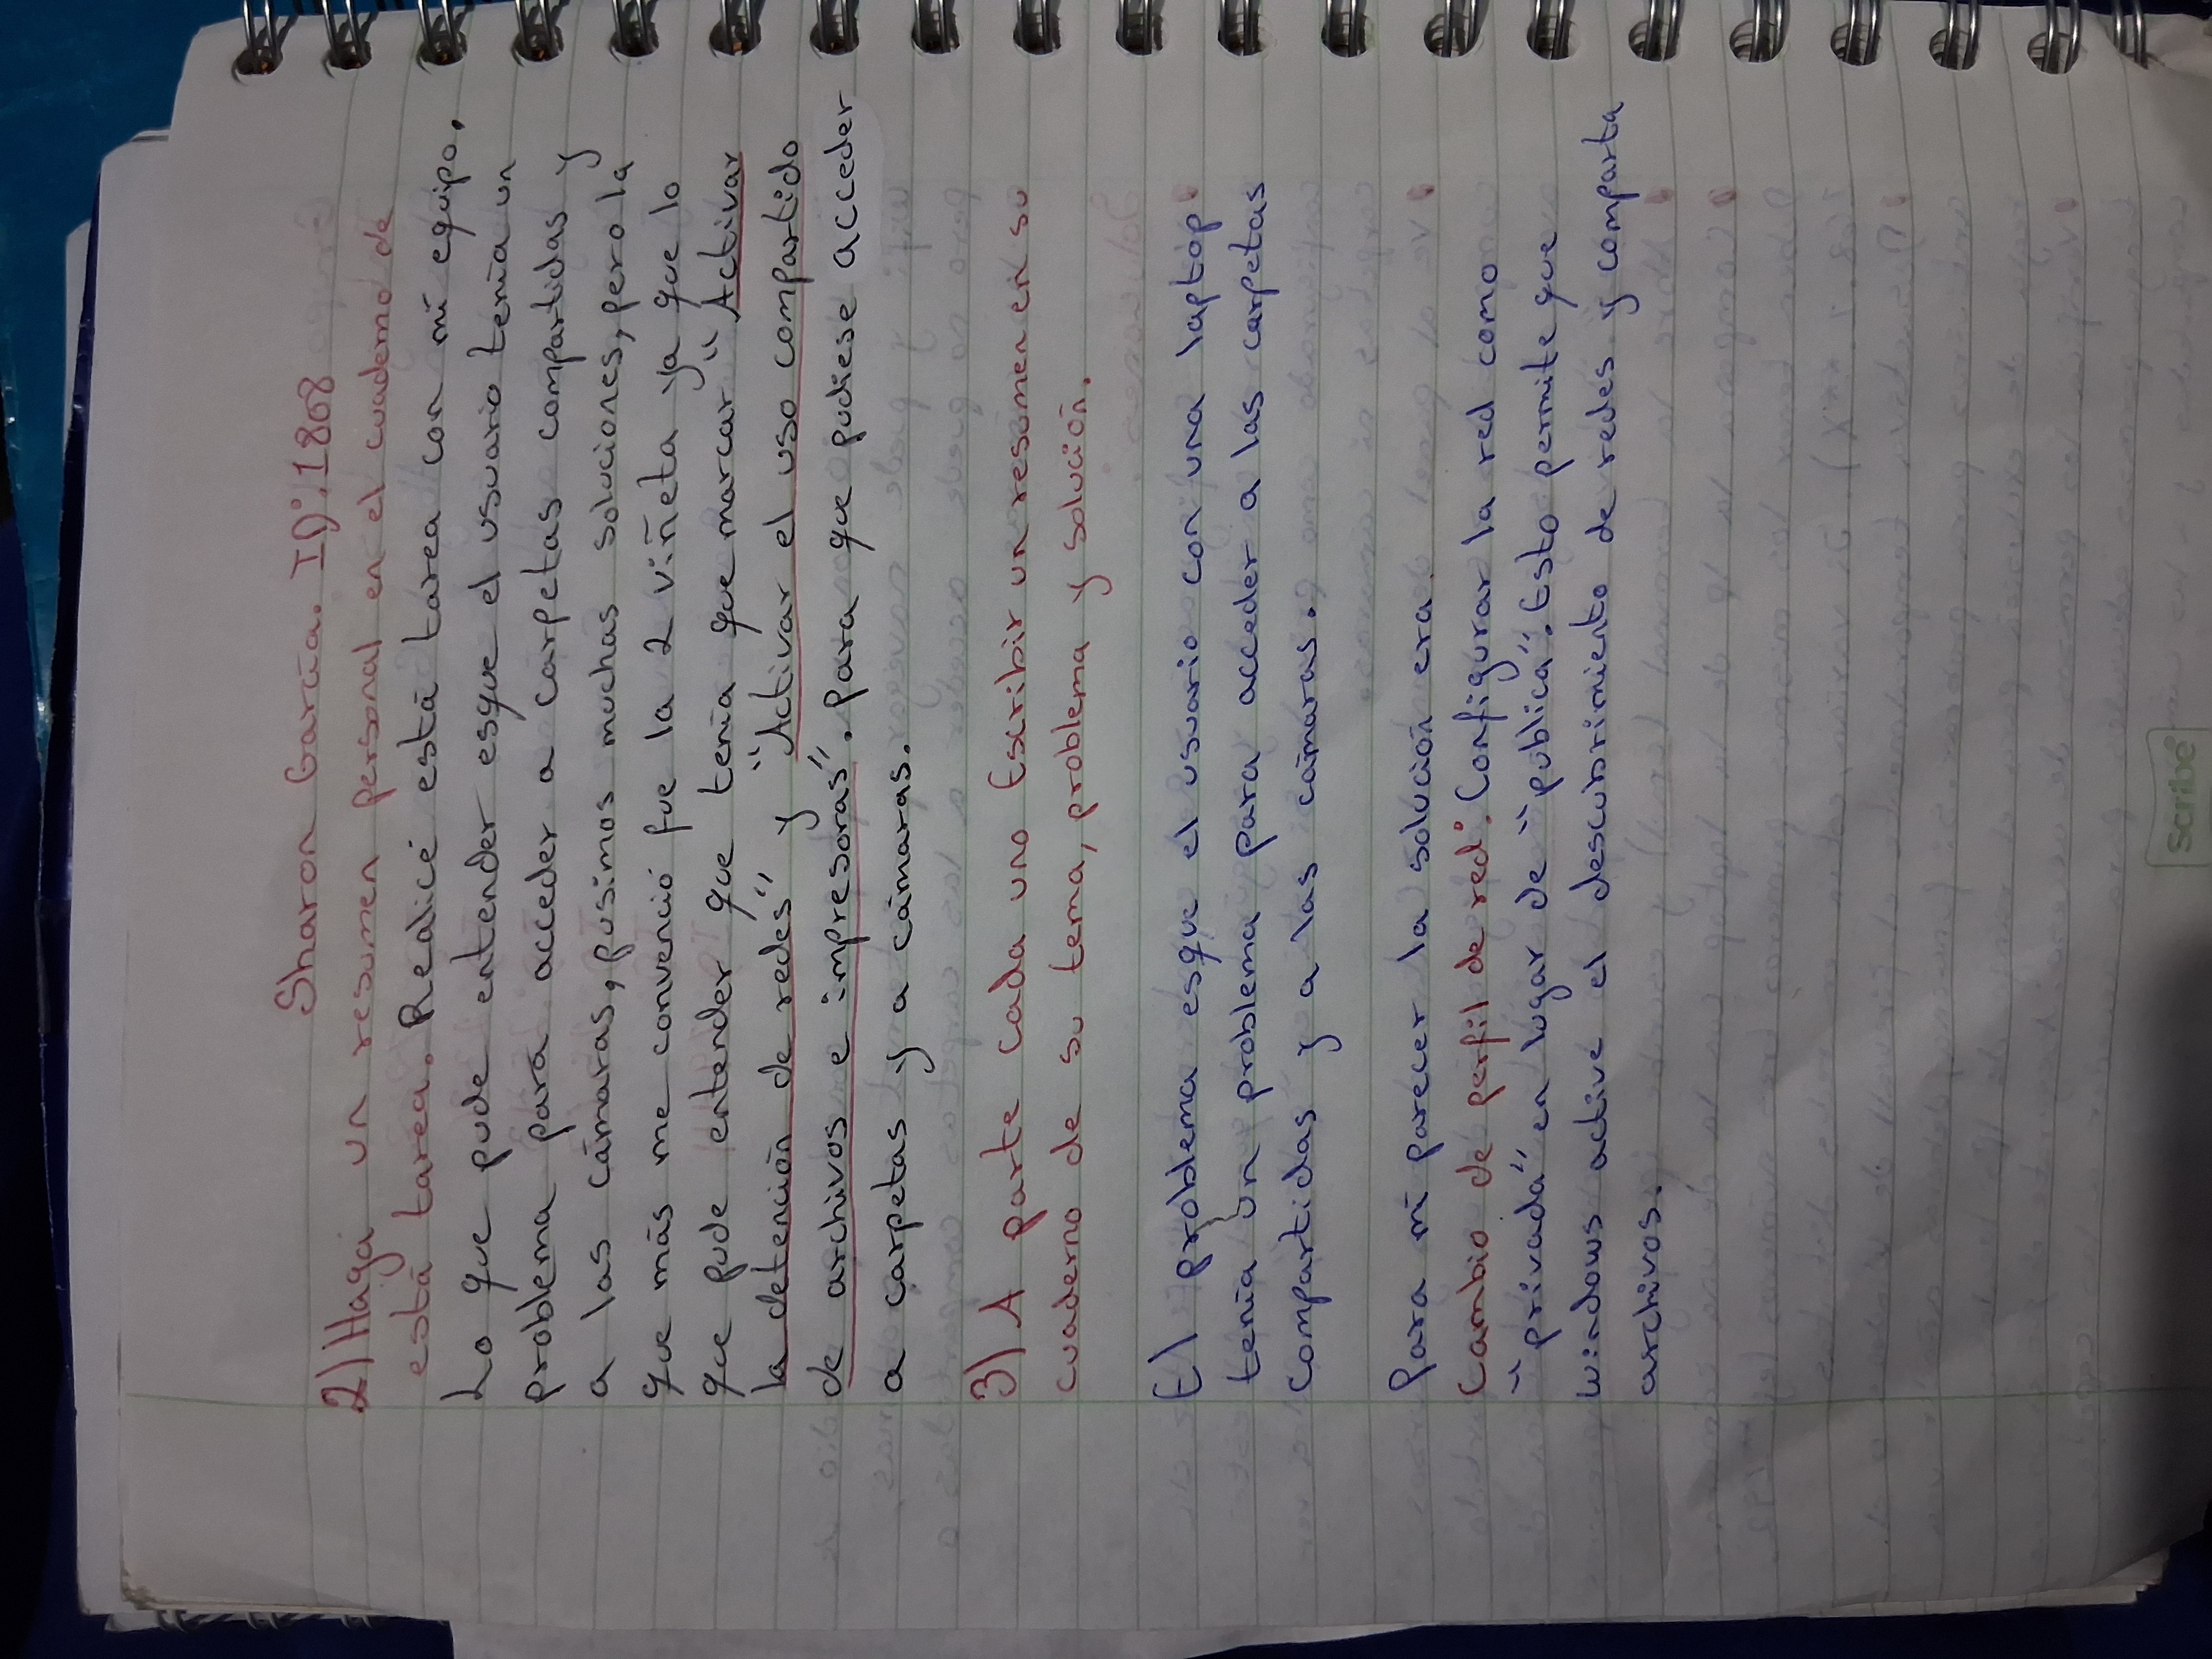 Sharon García. ID: 1808
2) Haga un resumen personal en el cuaderno de
está tarea. Realicé está tarea con mi equipo.
Lo que pude entender esque el usuario tenía un
problema para acceder a carpetas compartidas y
a las cámaras, pusimos muchas soluciones, pero la
que más me convenció fue la 2 viñeta ya que lo
que pude entender que tenía que marcar "Activar
la detención de redes" y "Activar el uso compartido
de archivos e impresoras". para que pudiese acceder
a carpetas y a cámaras.
3) A parte cada uno Escribir un resumen en su
cuaderno de su tema, problema y solución.
El problema esque el usuario con una laptop
tenía un problema para acceder a las carpetas
compartidas y a las cámaras.
Para mi parecer la solución era
Cambio de perfil de red: Configurar la red como
"privada" en lugar de "pública". Esto permite que
windows active el descubrimiento de redes y comparta
archivos.
Scribe